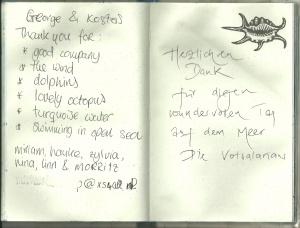 George & Kostas
Thank you for:
* good company
* the wind
* dolphins
* lovely octopus
* turquoise water
* swimming in open sea
miriam, hauke, sylvia,
nina, linn & MORRITZ
Herzlichen
Dank
für diesen
wundervollen Tag
auf dem Meer
Die